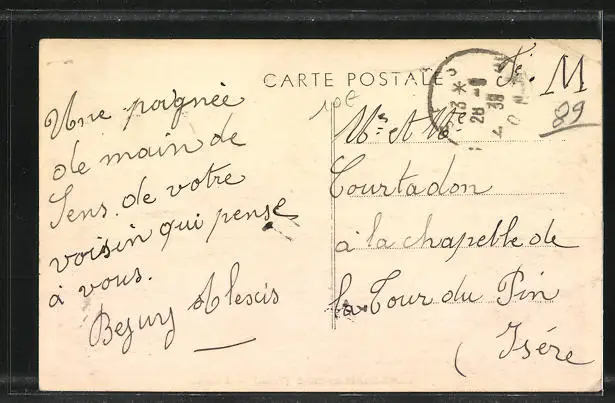 CARTE POSTALE
Une poignée
de main de
Sens de votre
voisin qui pense
à vous.
Alexis
F.M
10€
89
Mr et Me
Courtadon
à la chapelle de
la Tour du Pin
(Isére
13 *
28 -8
38